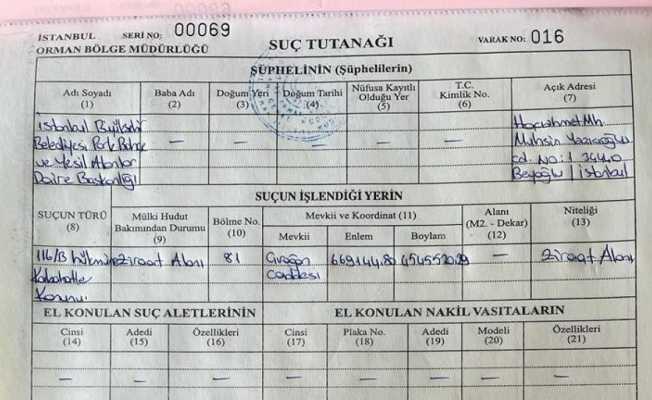 İSTANBUL SERİ NO: 00069
ORMAN BÖLGE MÜDÜRLÜĞÜ SUÇ TUTANAĞI VARAK NO: 016
ŞÜPHELİNİN (Şüphelilerin)
Adı Soyadı (1) Baba Adı (2) Doğum Yeri (3) Doğum Tarihi (4) Nüfusa Kayıtlı Olduğu Yer (5) T.C. Kimlik No. (6) Açık Adresi (7)
İstanbul Büyükşehir Hacıahmet Mh.
Belediyesi Park Bahçe — — — — — Muhsin Yazıcıoğlu
ve Yeşil Alanlar cd. No:1 34440
Daire Başkanlığı Beyoğlu / İstanbul
SUÇUN İŞLENDİĞİ YERİN
SUÇUN TÜRÜ (8) Mülki Hudut Bakımından Durumu (9) Bölme No. (10) Mevkii ve Koordinat (11) Mevkii Enlem Boylam Alanı (M2. - Dekar) (12) Niteliği (13)
116/B Ziraat Alanı 81 Çırağan 669144.80 — Ziraat Alanı
Kabahatler Caddesi
Kanunu
EL KONULAN SUÇ ALETLERİNİN EL KONULAN NAKİL VASITALARIN
Cinsi (14) Adedi (15) Özellikleri (16) Cinsi (17) Plaka No. (18) Adedi (19) Modeli (20) Özellikleri (21)
— — — — — — — —